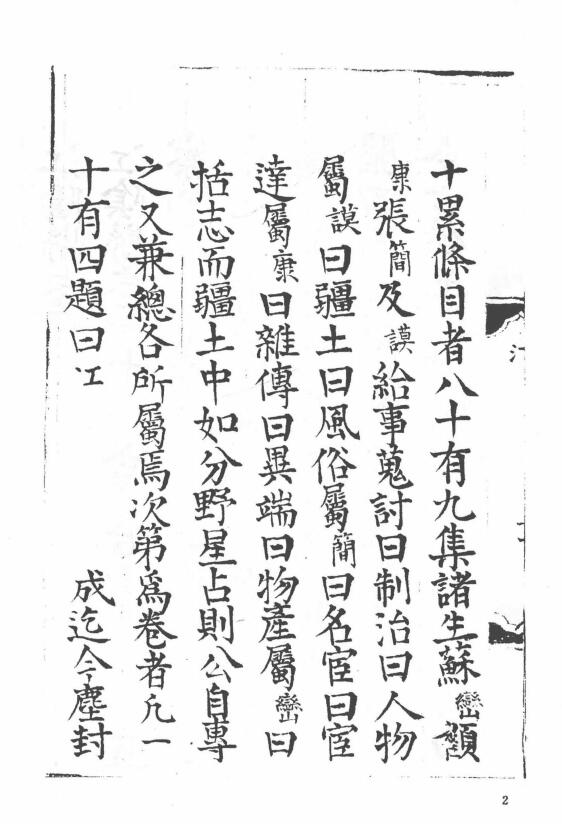 十累條目者八十有九集諸生蘇巒顏
康張簡及謨給事蒐討曰制治曰人物
屬謨曰疆土曰風俗屬簡曰名宦曰宦
達屬康曰雜傳曰異端曰物產屬巒曰
括志而疆土中如分野星占則公自專
之又兼總各所屬焉次第為卷者凡一
十有四題曰江
成迄今塵封
2